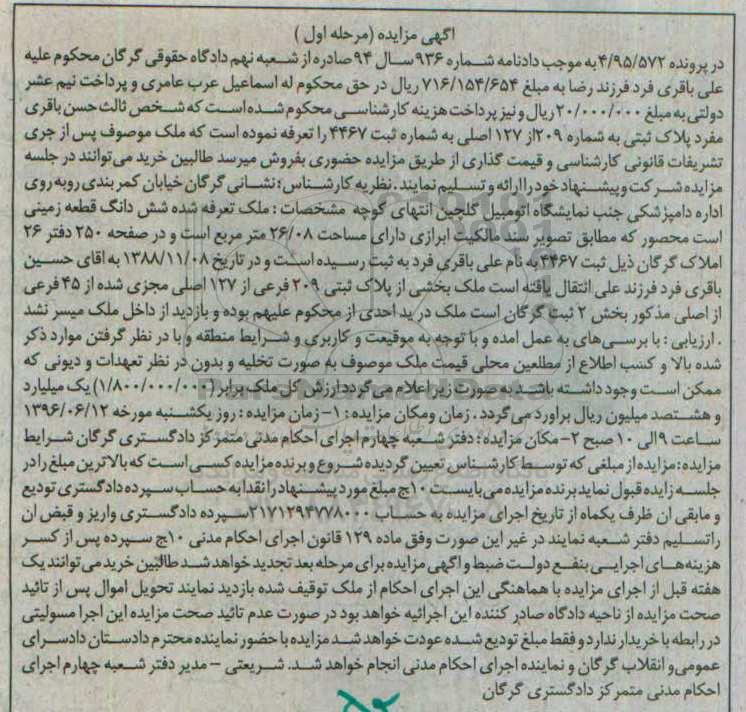 اگهی مزایده (مرحله اول )
در پرونده ۴/۹۵/۵۷۲ به موجب دادنامه شماره ۹۳۶ سال ۹۴ صادره از شعبه نهم دادگاه حقوقی گرگان محکوم علیه
علی باقری فرد فرزند رضا به مبلغ ۷۱۶/۱۵۴/۶۵۴ ریال در حق محکوم له اسماعیل عرب عامری و پرداخت نیم عشر
دولتی به مبلغ ۲۰/۰۰۰/۰۰۰ ریال و نیز پرداخت هزینه کارشناسی محکوم شده است که شخص ثالث حسن باقری
مفرد پلاک ثبتی به شماره ۲۰۹ از ۱۲۷ اصلی به شماره ثبت ۴۴۶۷ را تعرفه نموده است که ملک موصوف پس از جری
تشریفات قانونی کارشناسی و قیمت گذاری از طریق مزایده حضوری بفروش میرسد طالبین خرید می توانند در جلسه
مزایده شرکت و پیشنهاد خود را ارائه و تسلیم نمایند. نظریه کارشناس: نشانی گرگان خیابان کمربندی روبه روی
اداره دامپزشکی جنب نمایشگاه اتومبیل گلچین انتهای کوچه مشخصات : ملک تعرفه شده شش دانگ قطعه زمینی
است محصور که مطابق تصویر سند مالکیت ابرازی دارای مساحت ۲۶/۰۸ متر مربع است و در صفحه ۲۵۰ دفتر ۲۶
املاک گرگان ذیل ثبت ۴۴۶۷ به نام علی باقری فرد به ثبت رسیده است و در تاریخ ۱۳۸۸/۱۱/۰۸ به اقای حسین
باقری فرد فرزند علی انتقال یافته است ملک بخشی از پلاک ثبتی ۲۰۹ فرعی از ۱۲۷ اصلی مجزی شده از ۴۵ فرعی
از اصلی مذکور بخش ۲ ثبت گرگان است ملک در ید احدی از محکوم علیهم بوده و بازدید از داخل ملک میسر نشد
. ارزیابی : با بررسی های به عمل امده و با توجه به موقعیت و کاربری و شرایط منطقه و با در نظر گرفتن موارد ذکر
شده بالا و کسب اطلاع از مطلعین محلی قیمت ملک موصوف به صورت تخلیه و بدون در نظر تعهدات و دیونی که
ممکن است وجود داشته باشد به صورت زیر اعلام می گردد ارزش کل ملک برابر (۱/۸۰۰/۰۰۰/۰۰۰) یک میلیارد
و هشتصد میلیون ریال براورد می گردد . زمان و مکان مزایده : ۱- زمان مزایده : روز یکشنبه مورخه ۱۳۹۶/۰۶/۱۲
ساعت ۹ الی ۱۰ صبح ۲- مکان مزایده : دفتر شعبه چهارم اجرای احکام مدنی متمرکز دادگستری گرگان شرایط
مزایده: مزایده از مبلغی که توسط کارشناس تعیین گردیده شروع و برنده مزایده کسی است که بالاترین مبلغ را در
جلسه زایده قبول نماید برنده مزایده می بایست ۱۰ج مبلغ مورد پیشنهاد را نقدا به حساب سپرده دادگستری تودیع
و مابقی ان ظرف یکماه از تاریخ اجرای مزایده به حساب ۲۱۷۱۲۹۴۷۷۸۰۰۰ سپرده دادگستری واریز و قبض ان
را تسلیم دفتر شعبه نمایند در غیر این صورت وفق ماده ۱۲۹ قانون اجرای احکام مدنی ۱۰ج سپرده پس از کسر
هزینه های اجرایی بنفع دولت ضبط و اگهی مزایده برای مرحله بعد تجدید خواهد شد طالبین خرید می توانند یک
هفته قبل از اجرای مزایده با هماهنگی این اجرای احکام از ملک توقیف شده بازدید نمایند تحویل اموال پس از تائید
صحت مزایده از ناحیه دادگاه صادر کننده این اجرائیه خواهد بود در صورت عدم تائید صحت مزایده این اجرا مسولیتی
در رابطه با خریدار ندارد و فقط مبلغ تودیع شده عودت خواهد شد مزایده با حضور نماینده محترم دادستان دادسرای
عمومی و انقلاب گرگان و نماینده اجرای احکام مدنی انجام خواهد شد. شریعتی – مدیر دفتر شعبه چهارم اجرای
احکام مدنی متمرکز دادگستری گرگان